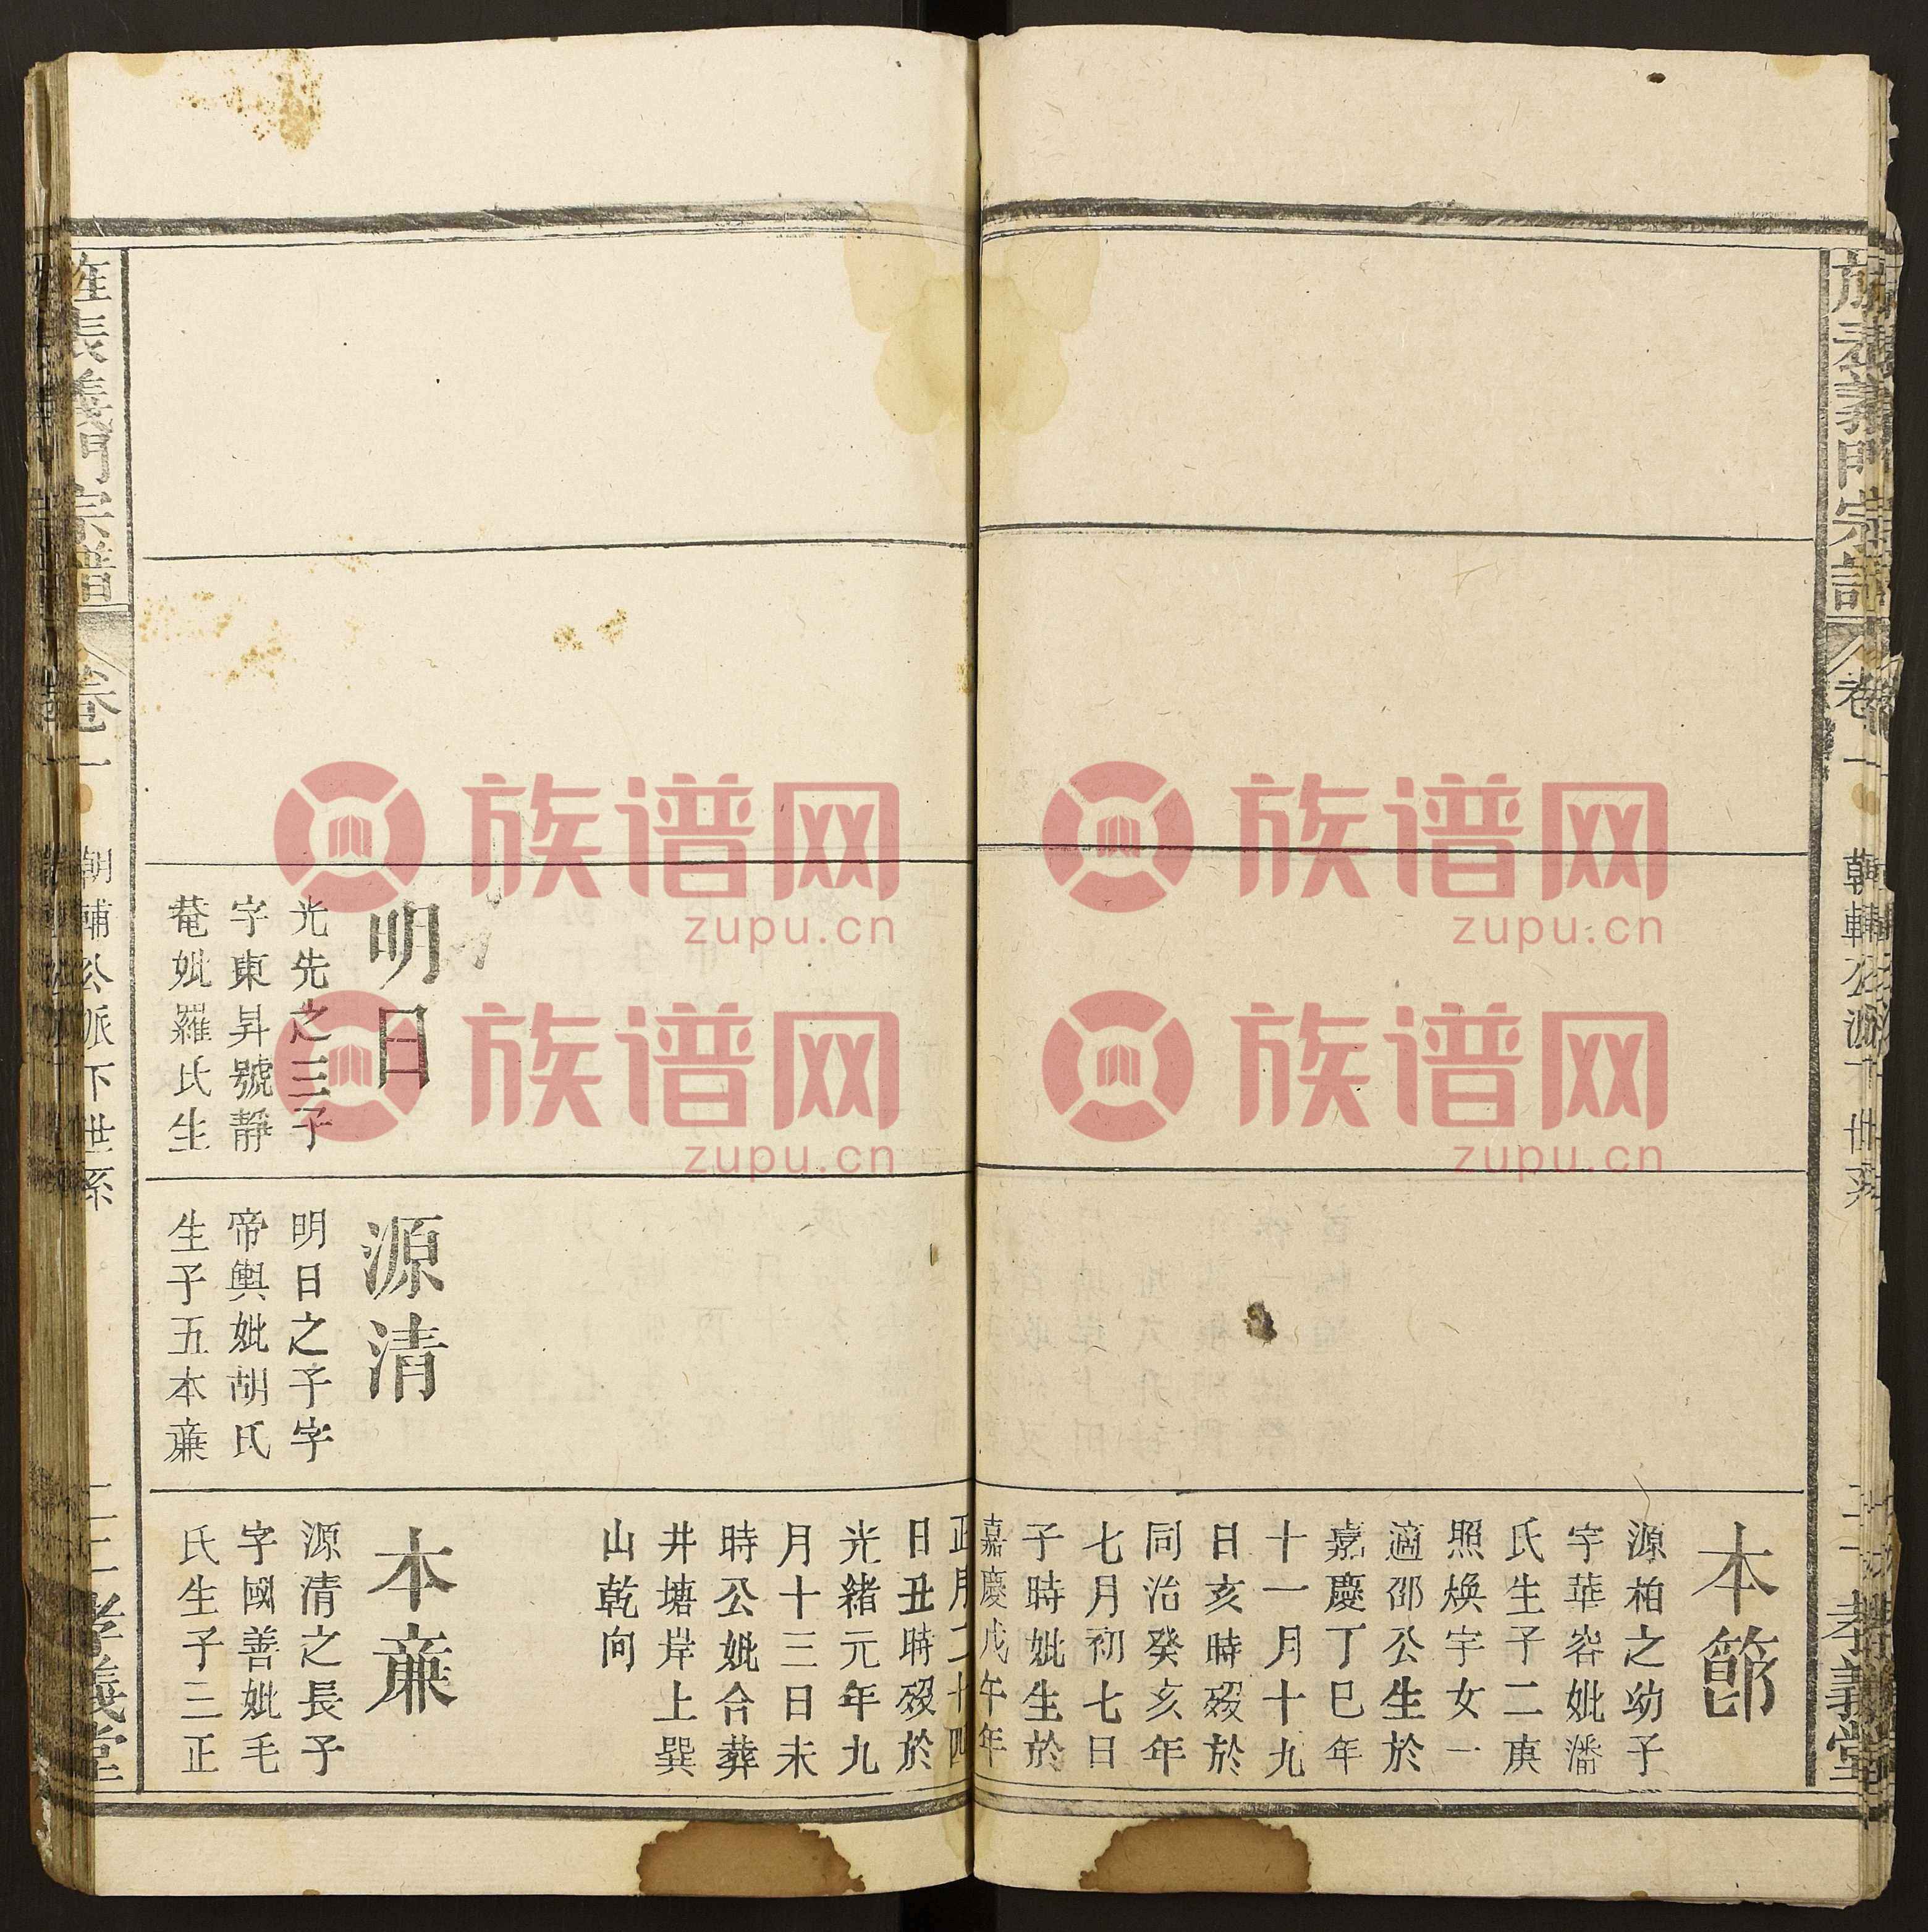 旌表義門宗譜
卷一
朝輔公派下世系
孝義堂
本節
源柏之幼子
字華容妣潘
氏生子二庚
照煥字女一
適邵公生於
嘉慶丁巳年
十一月十九
日亥時歿於
同治癸亥年
七月初七日
子時妣生於
嘉慶戊午年
正月二十四
日丑時歿於
光緒元年九
月十三日未
時公妣合葬
井塘岸上巽
山乾向
明日
光先之三子
字東昇號靜
菴妣羅氏生
源清
明日之子字
帝輿妣胡氏
生子五本薕
本薕
源清之長子
字國善妣毛
氏生子三正
旌表義門宗譜
卷一
朝輔公派下世系
孝義堂
族谱网
zupu.cn
族谱网
zupu.cn
族谱网
zupu.cn
族谱网
zupu.cn